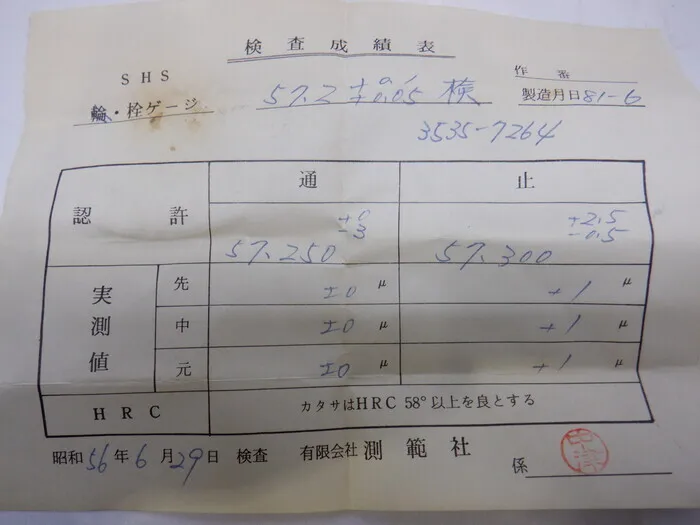 検査成績表
SHS
作番
輪・栓ゲージ 57.2 +0.1 +0.05 検 製造月日 81-6
3535-7264
通 止
認許 57.250 +0 -3 57.300 +2.5 -0.5
実測値 先 ±0 μ +1 μ
中 ±0 μ +1 μ
元 ±0 μ +1 μ
HRC カタサはHRC 58°以上を良とする
昭和56年6月29日 検査 有限会社 測範社 係